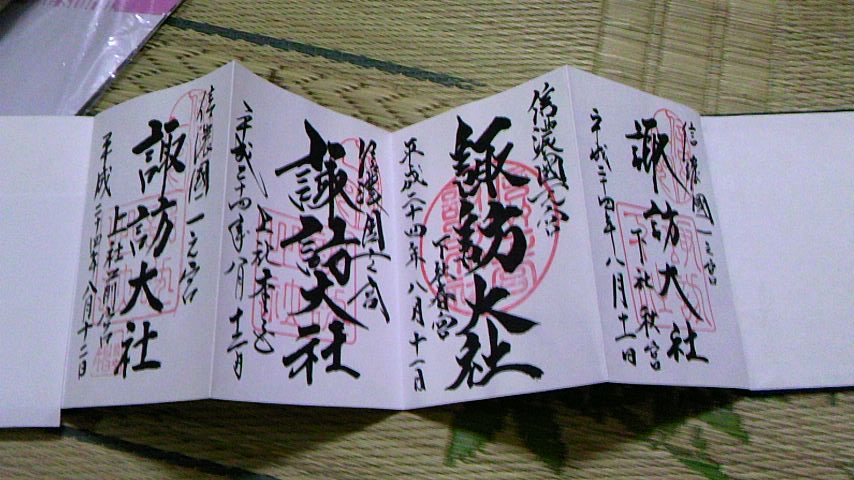 信濃國一之宮
諏訪大社
下社秋宮
平成二十四年八月十一日
信濃國一之宮
諏訪大社
下社春宮
平成二十四年八月十一日
信濃國一之宮
諏訪大社
上社本宮
平成二十四年八月十二日
信濃國一之宮
諏訪大社
上社前宮
平成二十四年八月十二日